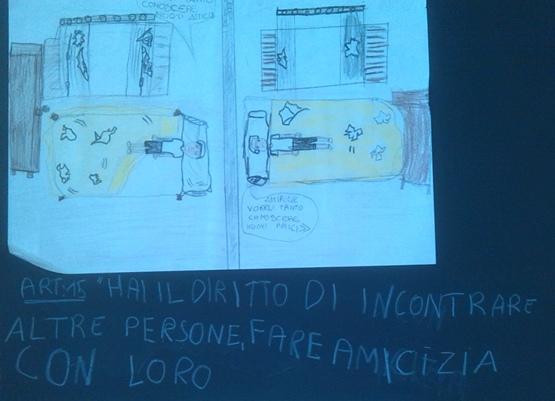 CONOSCERE
NUOVI AMICI
VORREI TANTO
CONOSCERE
NUOVI AMICI»
ART.15 "HAI IL DIRITTO DI INCONTRARE
ALTRE PERSONE, FARE AMICIZIA
CON LORO